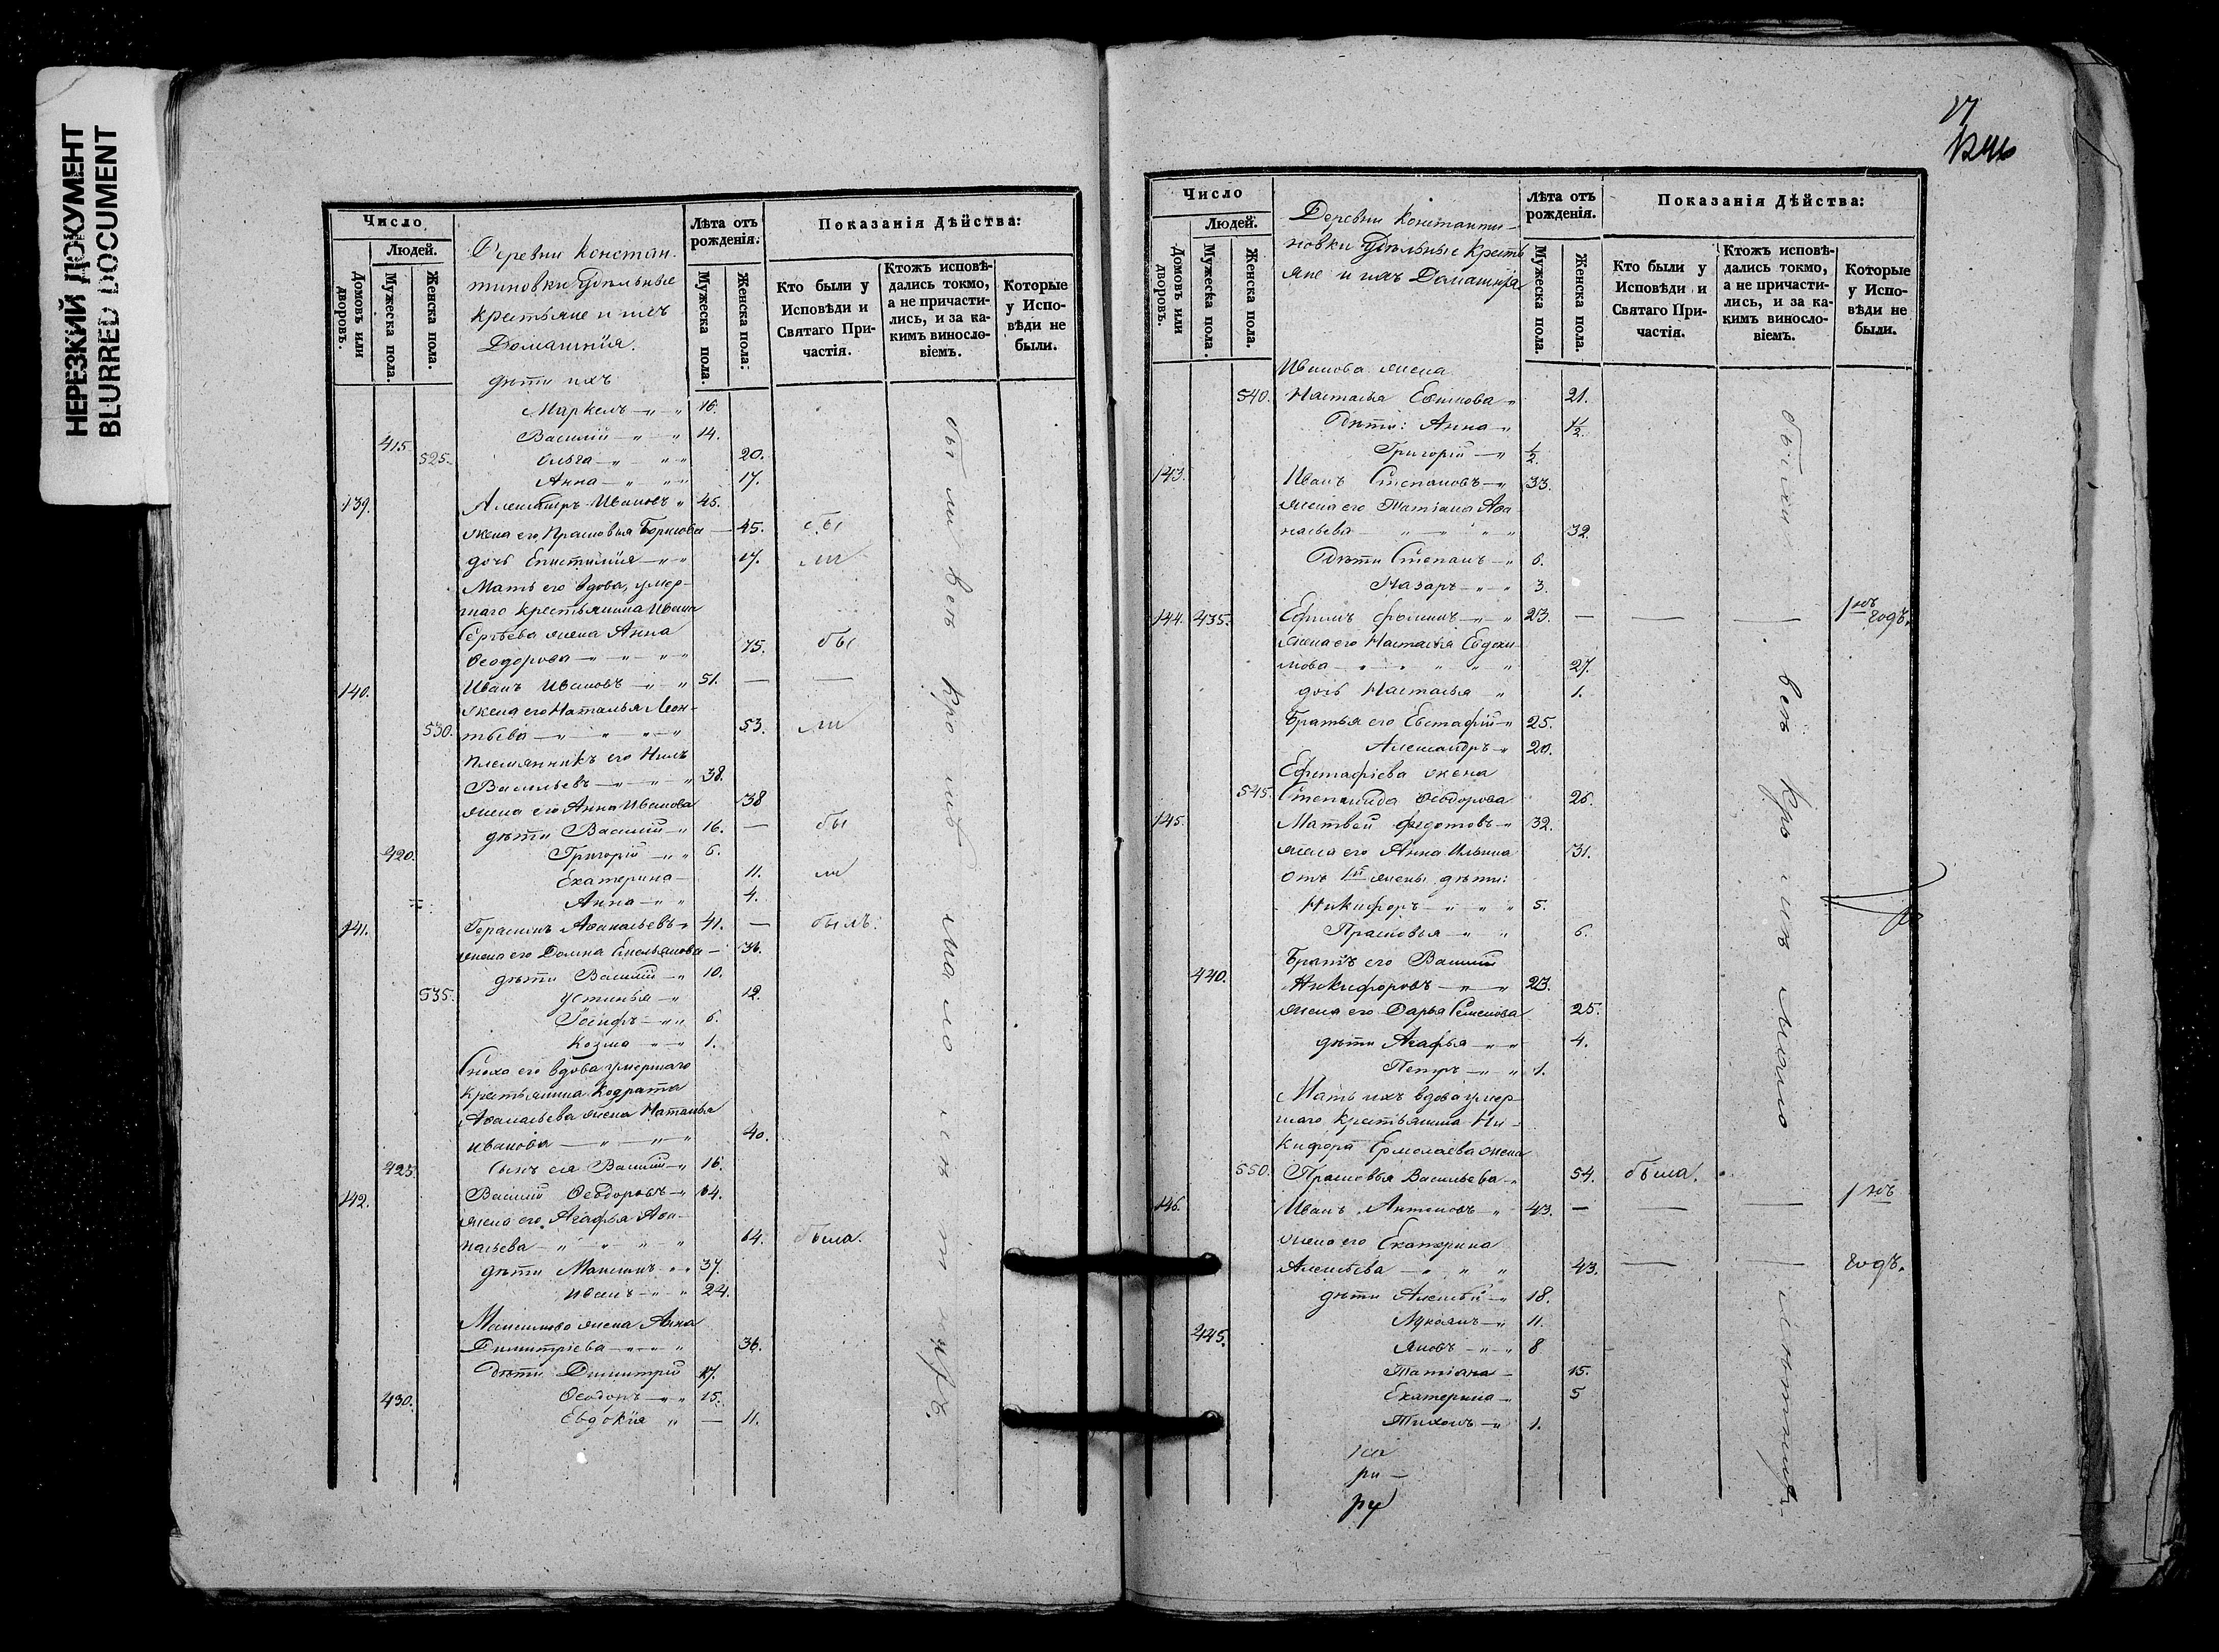 НЕРЕЗКИЙ ДОКУМЕНТ
BLURRED DOCUMENT
Число
Людей.
Домовъ или дворовъ.
Мужеска пола.
Женска пола.
Деревни Констан-
тиновки Удѣльные
крестьяне и ихъ
Домашнія.
Лѣта отъ рожденія.
Мужеска пола.
Женска пола.
Показанія Дѣйства:
Кто были у Исповѣди и Святаго При-частія.
Ктожъ исповѣ-дались токмо, а не причасти-лись, и за ка-кимъ винословіемъ.
Которые у Испо-вѣди не были.
дѣти ихъ
Маркелъ 16.
415. Василій 14.
525. Ольга 20.
Анна 17.
139. Александръ Ивановъ 45.
жена его Прасковья Борисова 45. бы
дочь Епистимія 17. ли
Мать его вдова, умер-
шаго крестьянина Ивана
Сергѣева жена Анна
Ѳеодорова 75. бы
140. Иванъ Ивановъ 51.
жена его Наталья Леон-
530. тьева 53. ли
племянникъ его Нилъ
Васильевъ 38.
жена его Анна Иванова 38
дѣти Василій 16. бы
420. Григорій 6.
Екатерина 11. ли
Анна 4.
141. Герасимъ Аѳанасьевъ 41. былъ.
жена его Домна Емельянова 36.
дѣти Василій 10.
535. Устинья 12.
Іосифъ 6.
Козма 1.
Сноха его вдова умершаго
крестьянина Кодрата
Аѳанасьева жена Наталья
Иванова 40.
425 Сынъ ея Василій 16.
142. Василій Ѳеодоровъ 64.
жена его Агафья Аѳа-
насьева 64. была.
дѣти Максимъ 37.
Иванъ 24.
Максимова жена Анна
Димитріева 36.
Дѣти Димитрій 17.
430. Ѳеодоръ 15.
Евдокія 11.
были всѣ кромѣ малолѣтнихъ.
17
Число
Людей.
Домовъ или дворовъ.
Мужеска пола.
Женска пола.
Деревни Константи-
новки Удѣльные Кресть
яне и ихъ Домашнія
Лѣта отъ рожденія.
Мужеска пола.
Женска пола.
Показанія Дѣйства:
Кто были у Исповѣди и Святаго При-частія.
Ктожъ исповѣ-дались токмо, а не причасти-лись, и за ка-кимъ винословіемъ.
Которые у Испо-вѣди не были.
Иванова жена
540. Настасья Ефимова 21.
Дѣти: Анна 1½.
Григорій ½.
143. Иванъ Степановъ 33.
жена его Татіана Аѳа
насьева 32.
Дѣти Степанъ 6.
Назаръ 3.
144. 435. Ефимъ Фоминъ 23. 1й годъ.
жена его Настасья Евдоки-
мова 27.
дочь Настасья 1.
Братья его Евстафій 25.
Александръ 20.
Евстафіева жена
545. Степанида Ѳеодорова 26.
145. Матвей Федотовъ 32.
жена его Анна Ильина 31.
Отъ 1й жены дѣти:
Никифоръ 5.
Прасковья 6.
Братъ его Василій
440. Никифоровъ 23.
жена его Дарья Семенова 25.
дѣти Агафья 4.
Петръ 1.
Мать ихъ вдова умер-
шаго крестьянина Ни-
кифора Ермолаева жена
550. Прасковья Васильева 54. была.
146. Иванъ Антоновъ 43. 1й
жена его Екатерина
Алексѣева 43. годъ.
дѣти Алексѣй 18.
Лукьянъ 11.
445. Яковъ 8
Татіана 15.
Екатерина 5
Тихонъ 1.
были всѣ кромѣ малолѣтнихъ
ру